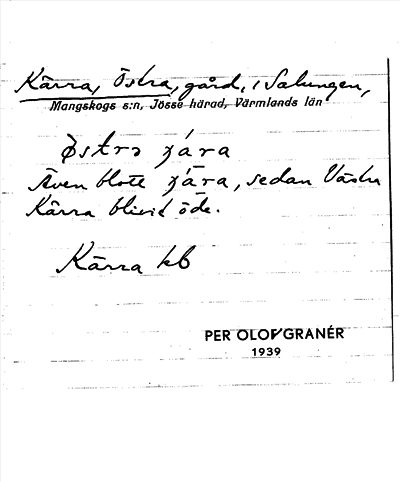 Kärra, Östra, gård, i Salungen,
Mangskogs s:n, Jösse härad, Värmlands län
Även blott, sedan Västra
Kärra blivit öde.
Kärra kb
PER OLOF GRANÉR
1939